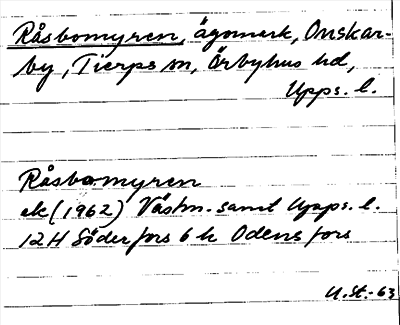 Råsbomyren, ägomark, Onskar-
by, Tierps sn, Örbyhus hd,
Upps. l.
Råsbomyren
ek (1962) Västm. samt Upps. l.
12H Söderfors 6 h Odensfors
U.St.-63